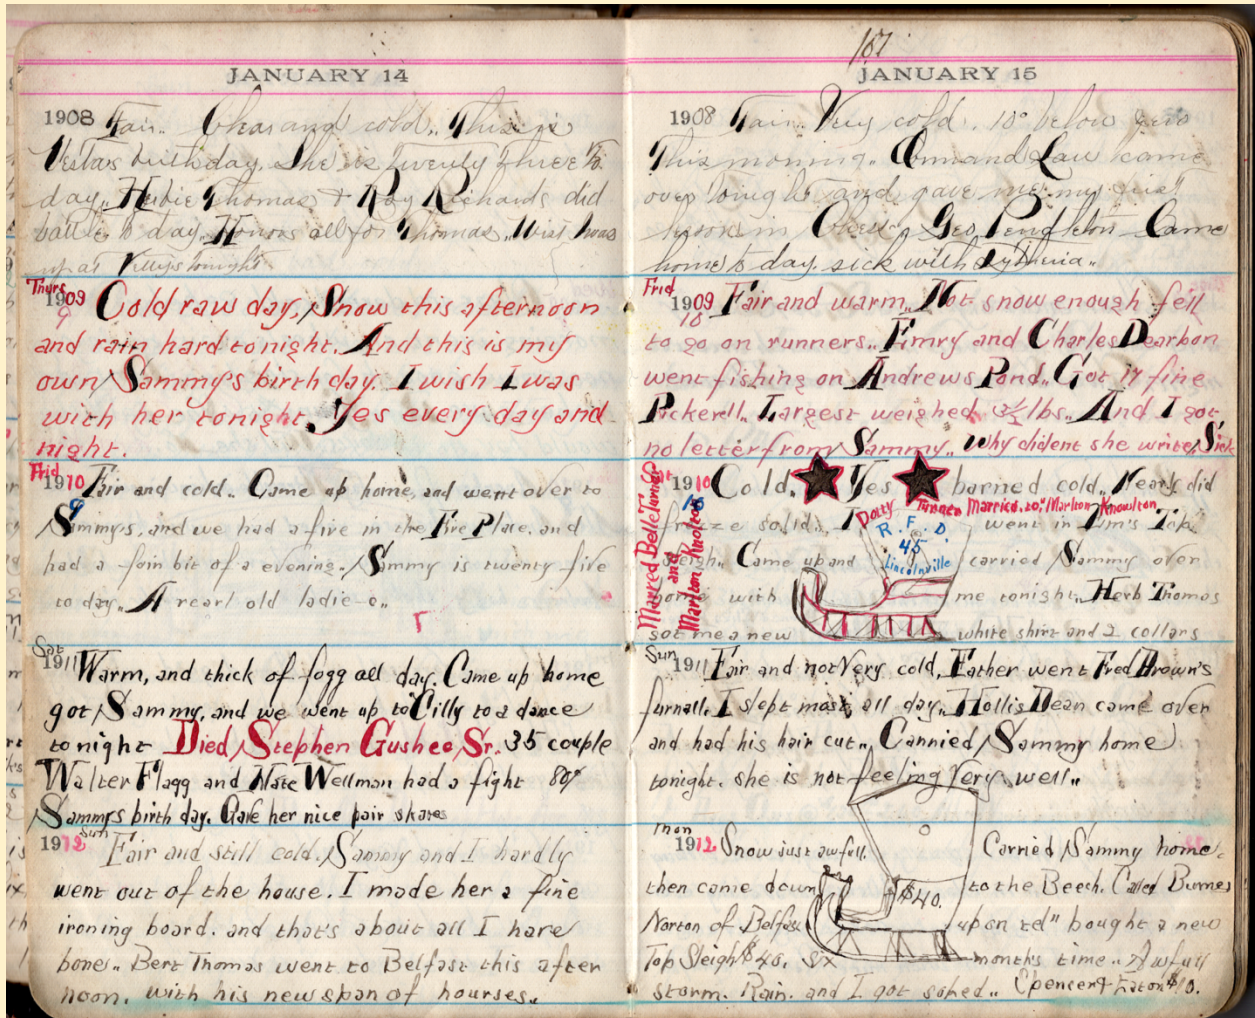 JANUARY 14
1908 Fair.. Clear and cold.. This is
Vesta's birthday. She is twenty three to
day.. Hubie Thomas + Roy Richards did
battle to day. Honors all for Thomas..
up at tonight
Thurs
1909 Cold raw day. Snow this afternoon
9
and rain hard tonight. And this is my
own Sammy's birth day. I wish I was
with her tonight. Yes every day and
night.
Frid
1910 Fair and cold.. Came up home, and went over to
9
Sammys, and we had a five in the Fire Place. and
had a foin bit of a evening.. Sammy is twenty five
to day.. A rearl old ladie-o..
Sat
1911 Warm, and thick of fogg all day. Came up home
got Sammy, and we went up to Cilly to a dance
tonight Died Stephen Gushee Sr. 35 couple
Walter Flagg and Nate Wellman had a fight
Sammys birth day. Gave her nice pair skates
Sun
1912 Fair and still cold. Sammy and I hardly
went out of the house. I made her a fine
ironing board. and that's about all I have
done.. Bert Thomas went to Belfast this after
noon. with his new span of hourses..
167
JANUARY 15
1908 Fair.. Very cold. 10° below zero
This morning.. Orm and Lau came
over tonight and gave me my first
lesson in Chess.. Geo Pendleton Came
home to day sick with
Frid
1909 Fair and warm.. Not snow enough fell
10
to go on runners.. Emry and Charles Dearbon
went fishing on Andrews Pond.. Got 17 fine
Pickerell. Largest weighed 3½ lbs.. And I got
no letter from Sammy.. Why dident she write, Sick
1910 Cold. Yes barned cold.. Nearly did
Dotty Turner Married to" Marlton Knowlton
freeze solid. I went in Jim's Top
R. F. D.
45
Lincolnville
sleigh.. Came up and carried Sammy over
home with me tonight.. Herb Thomas
got me a new white shirt and 2 collars
Marred Belle Turner
and
Marlton Knolton
Sun
1911 Fair and not Very cold, Father went Fred Brown's
furnall. I slept most all day.. Hollis Dean came over
and had his hair cut.. Carried Sammy home
tonight. she is not feeling Very well..
Mon
1912 Snow just awfull. Carried Sammy home.
then came down to the Beech. Called Burnes
$40.
Norton of Belfast up on tel" bought a new
Top Sleigh $40. Six months time.. Awfull
storm. Rain. and I got soked.. Spencer Eaton $10.